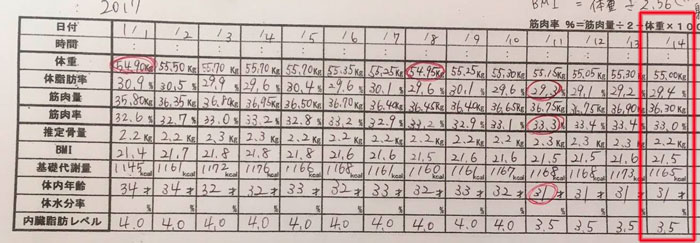 : 2017
BMI = 体重 ÷ 2.56
筋肉率 %=筋肉量÷2÷体重×100
日付 1/1 1/2 1/3 1/4 1/5 1/6 1/7 1/8 1/9 1/10 1/11 1/12 1/13 1/14
時間 : : : : : : : : : : : : : :
体重 54.90Kg 55.50Kg 55.70Kg 55.70Kg 55.70Kg 55.35Kg 55.25Kg 54.95Kg 55.25Kg 55.30Kg 55.15Kg 55.05Kg 55.30Kg 55.00Kg
体脂肪率 30.9% 30.5% 29.9% 29.6% 30.4% 29.6% 30.1% 29.6% 30.1% 29.6% 29.3% 29.1% 29.2% 29.4%
筋肉量 35.80Kg 36.35Kg 36.95Kg 36.50Kg 36.70Kg 36.40Kg 36.45Kg 36.40Kg 36.65Kg 36.75Kg 36.75Kg 36.90Kg 36.30Kg
筋肉率 32.6% 32.7% 33.0% 33.2% 32.8% 33.2% 32.9% 33.2% 32.9% 33.1% 33.3% 33.4% 33.4% 33.0%
推定骨量 2.2Kg 2.2Kg 2.3Kg 2.3Kg 2.2Kg 2.2Kg 2.2Kg 2.2Kg 2.2Kg 2.2Kg 2.3Kg 2.2Kg 2.3Kg 2.2Kg
BMI 21.4 21.7 21.8 21.8 21.8 21.6 21.6 21.5 21.6 21.6 21.5 21.5 21.6 21.5
基礎代謝量 1145kcal 1161kcal 1172kcal 1176kcal 1168kcal 1168kcal 1161kcal 1160kcal 1161kcal 1167kcal 1168kcal 1168kcal 1173kcal 1165kcal
体内年齢 34才 34才 32才 32才 33才 32才 33才 32才 33才 32才 31才 31才 31才 31
体水分率 % % % % % % % % % % % % %
内臓脂肪レベル 4.0 4.0 4.0 4.0 4.0 4.0 4.0 4.0 4.0 4.0 3.5 3.5 3.5 3.5